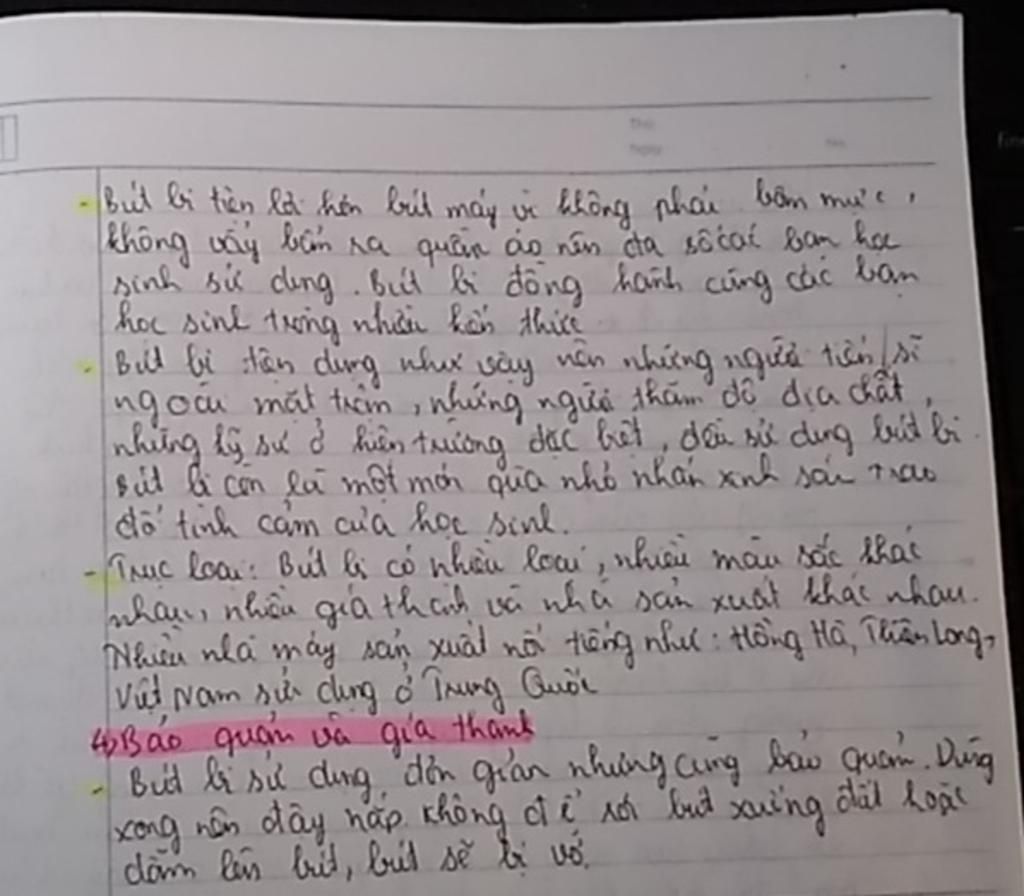 - Bút bi tiện lợi hơn bút máy vì không phải bơm mực,
không vấy bẩn ra quần áo nên đa số các bạn học
sinh sử dụng. Bút bi đồng hành cùng các bạn
học sinh trong nhiều kiến thức
- Bút bi tiện dụng như vậy nên những người tiến sĩ
ngoài mặt trận, những người thăm dò địa chất,
những kỹ sư ở hiện trường đặc biệt, đều sử dụng bút bi.
Bút bi còn là một món quà nhỏ nhắn xinh xắn trao
đổi tình cảm của học sinh.
- Trục loại: Bút bi có nhiều loại, nhiều màu sắc khác
nhau, nhiều giá thành và nhà sản xuất khác nhau.
Nhiều nhà máy sản xuất nổi tiếng như: Hồng Hà, Thiên Long,
Việt Nam sử dụng ở Trung Quốc
4) Bảo quản và giá thành
- Bút bi sử dụng đơn giản nhưng cũng bảo quản. Dùng
xong nên đậy nắp không để rơi bút xuống đất hoặc
dẫm lên bút, bút sẽ bị vỡ.